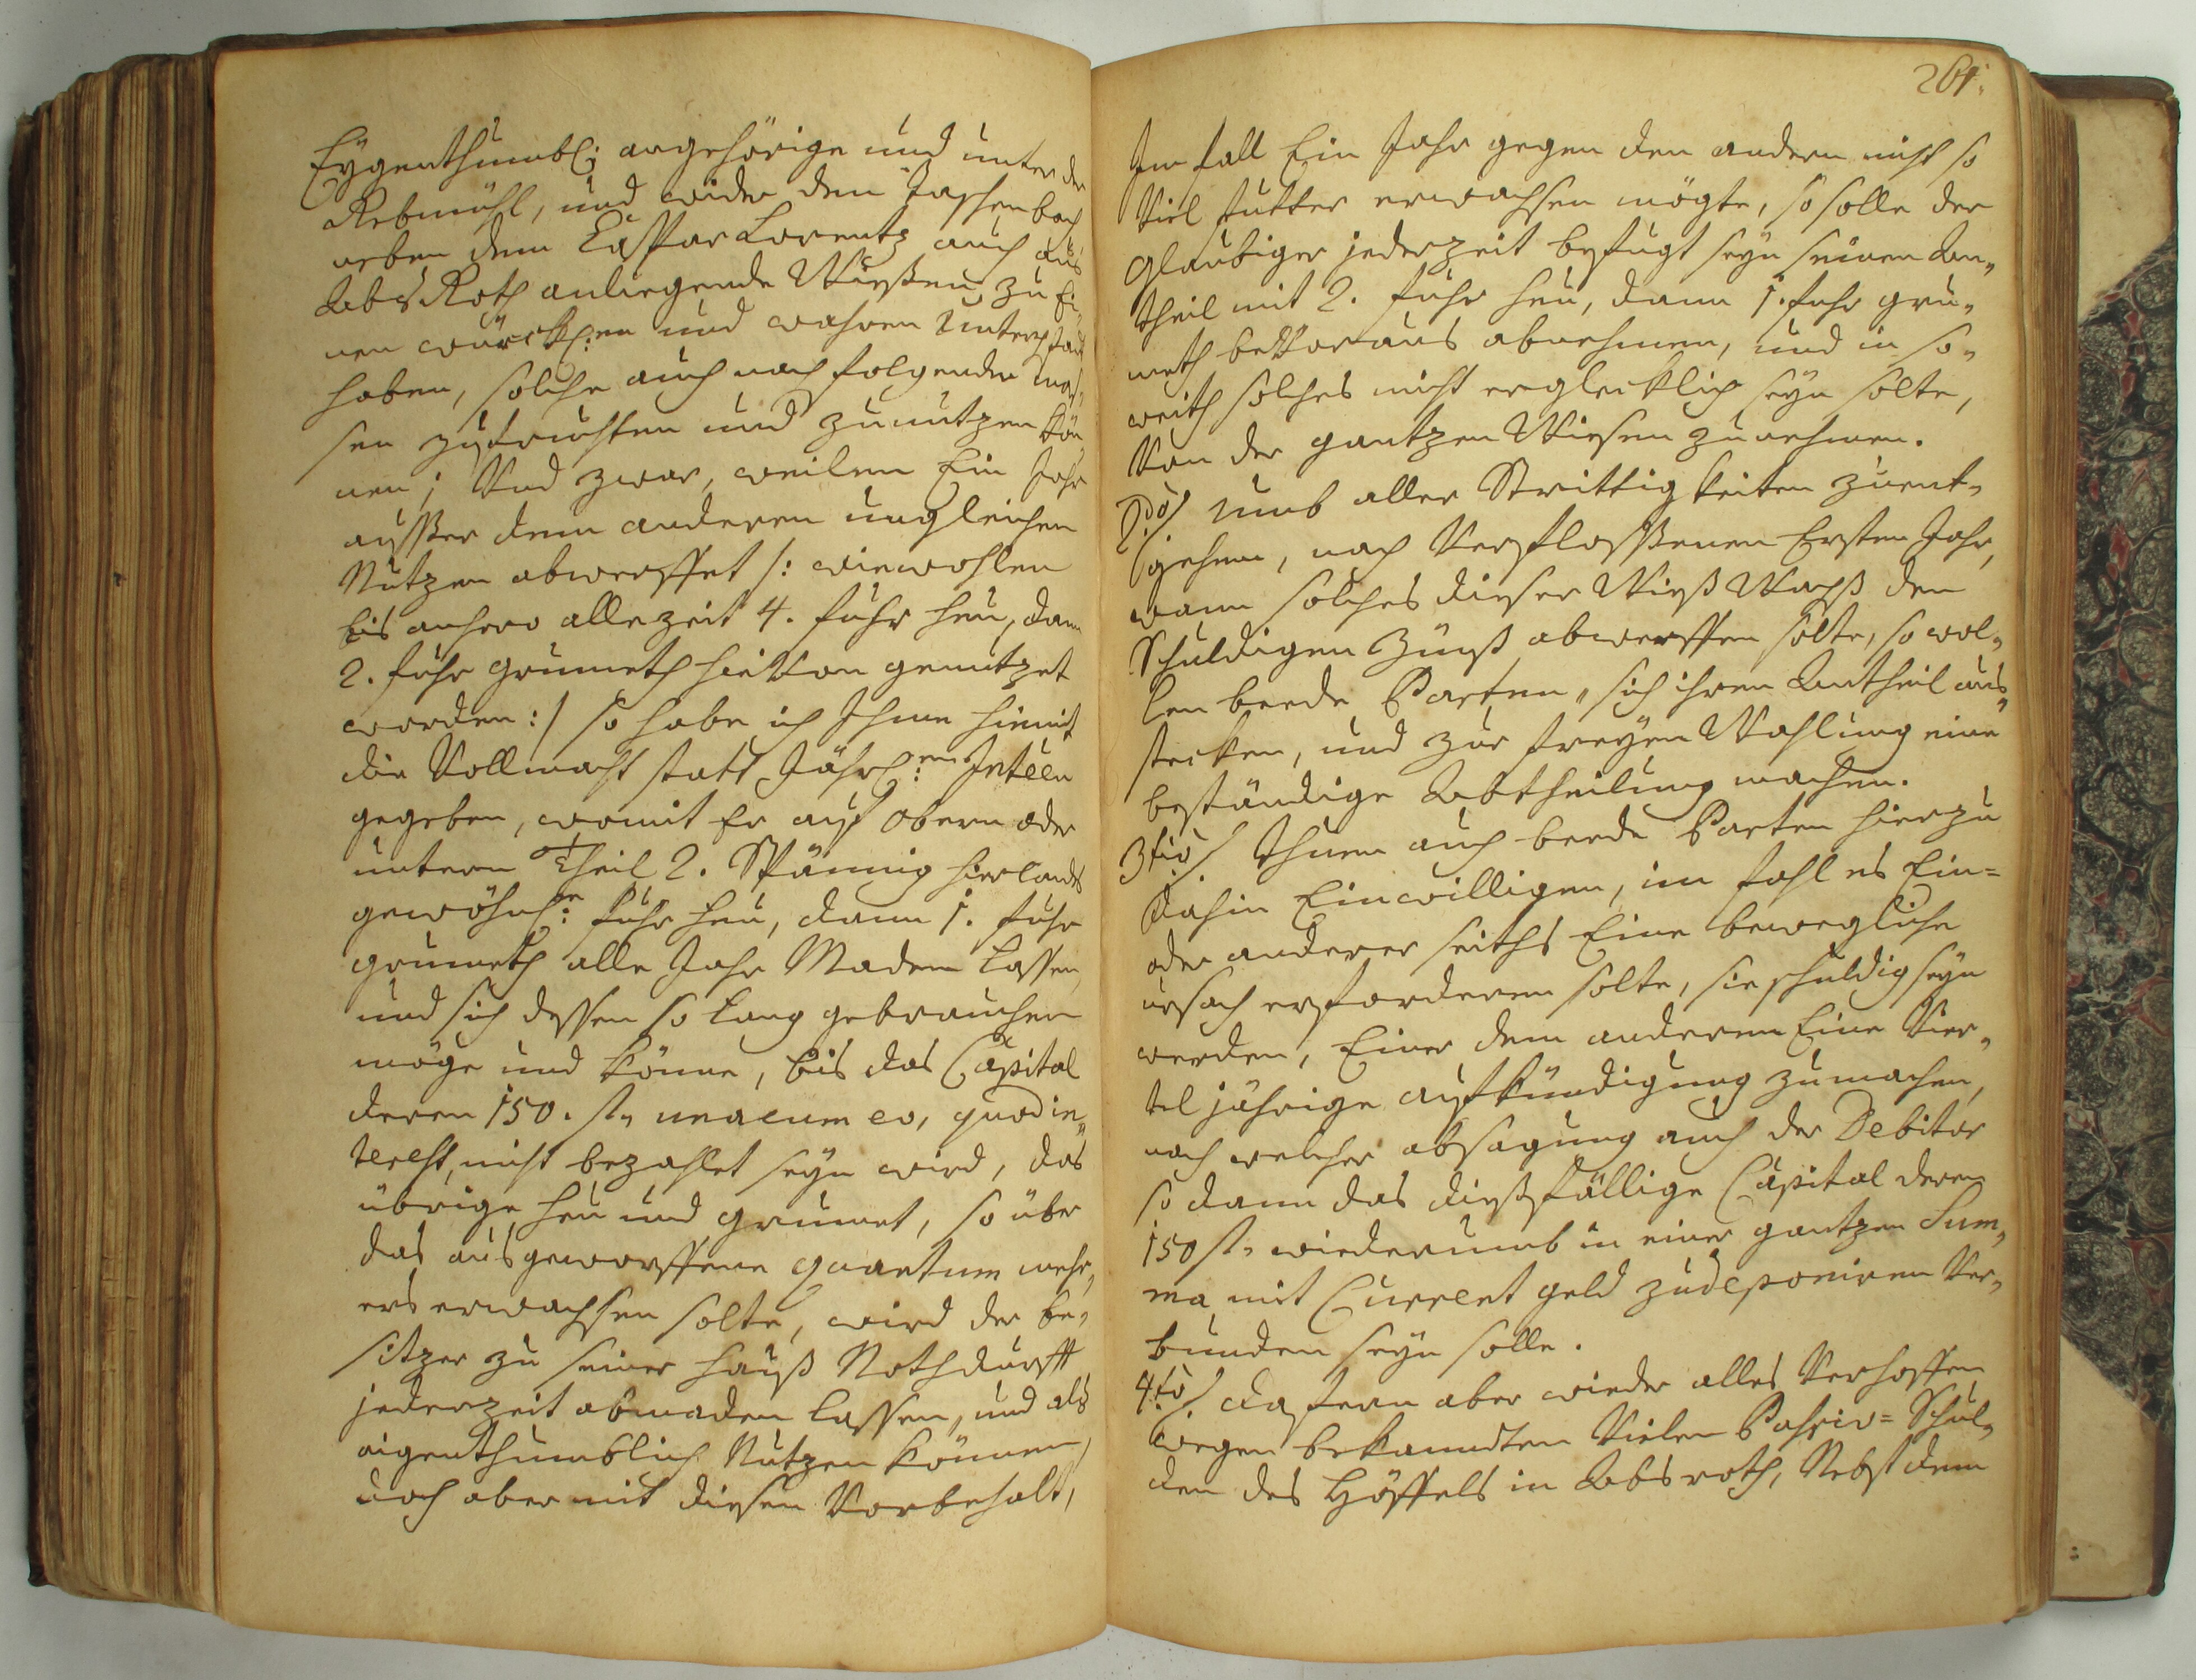 Eÿgenthumbl: angehörige und unter der
Rebmühl, und wider den Taschenbach
neben dem Caspar Lorentz auch aus
AbsRoth anliegende Wießen zu Ei„
nen würckl:en und wahren Unterpfand
haben, solche auch nach folgender mas„
sen zufruchten und zunutzen kön„
nen; Und zwar, weilen Ein Jahr
ausser dem anderen ungleichen
Nutzen abwerffet /: wiewohlen
bis anhero allezeit 4. fuhr heu, dann
2. fuhr grumeth hievon genutzet
worden :/ so habe ich Ihme hiemit
die Vollmacht statt Jährl:en Inteen
gegeben, womit Er auf obern oder
untern Theil 2. Spännig hierlands
gewöhnl:e fuhr heu, dann 1. fuhr
grumeth alle Jahr Maden lassen,
und sich dessen so lang gebrauchen
möge und könne, bis das Capital
deren 150. f. unacum eo, quod in„
terest, nicht bezahlet seyn wird, das
übrige heu und grumet, so über
das ausgeworffene quantum mehr„
ers erwachsen solte, wird der be„
sitzer zu seiner Hauß Nothdurfft
jederzeit abmaden lassen, und als
eigenthumblich Nutzen können,
doch aber mit diesen Vorbehalt,
261.
Im fall Ein Jahr gegen den andern nicht so
Viel futter erwachsen mögte, so solle der
glaubiger jederzeit befugt seyn seinen An„
theil mit 2. fuhr heu, dann 1. fuhr gru„
meth bevoraus abnehmen, und in so„
weith solches nicht erglecklich seyn solte,
Von der gantzen Wiesen zunehmen.
2do/ umb aller Strittigkeiten zuent„
gehen, nach Verflossenen Ersten Jahr,
wann solches dieser Wieß Wachß den
Schuldigen Zinß abwerffen solte, so wol„
len beede Parten, sich ihren Antheil aus„
stecken, und zur freyen Wahlung eine
beständige Abtheilung machen.
3tio/ thuen auch beede Parten hierzu
dahin Einwilligen, im fahl es Ein=
oder anderer seiths Eine bewegliche
ursach erforderen solte, sie schuldig seyn
werden, Einer dem anderen Eine Vier„
tel jährige aufkündigung zumachen,
nach welcher absagung auch der Debitor
so dann das dießfällige Capital deren
150 f. wiederumb in einer gantzen Sum„
ma mit Current geld zudeponiren Ver„
bunden seyn solle.
4to/ dafern aber wieder alles Verhoffen
wegen bekanndten Vielen Passiv= Schul„
den des Höffels in Absroth, Nebst dem